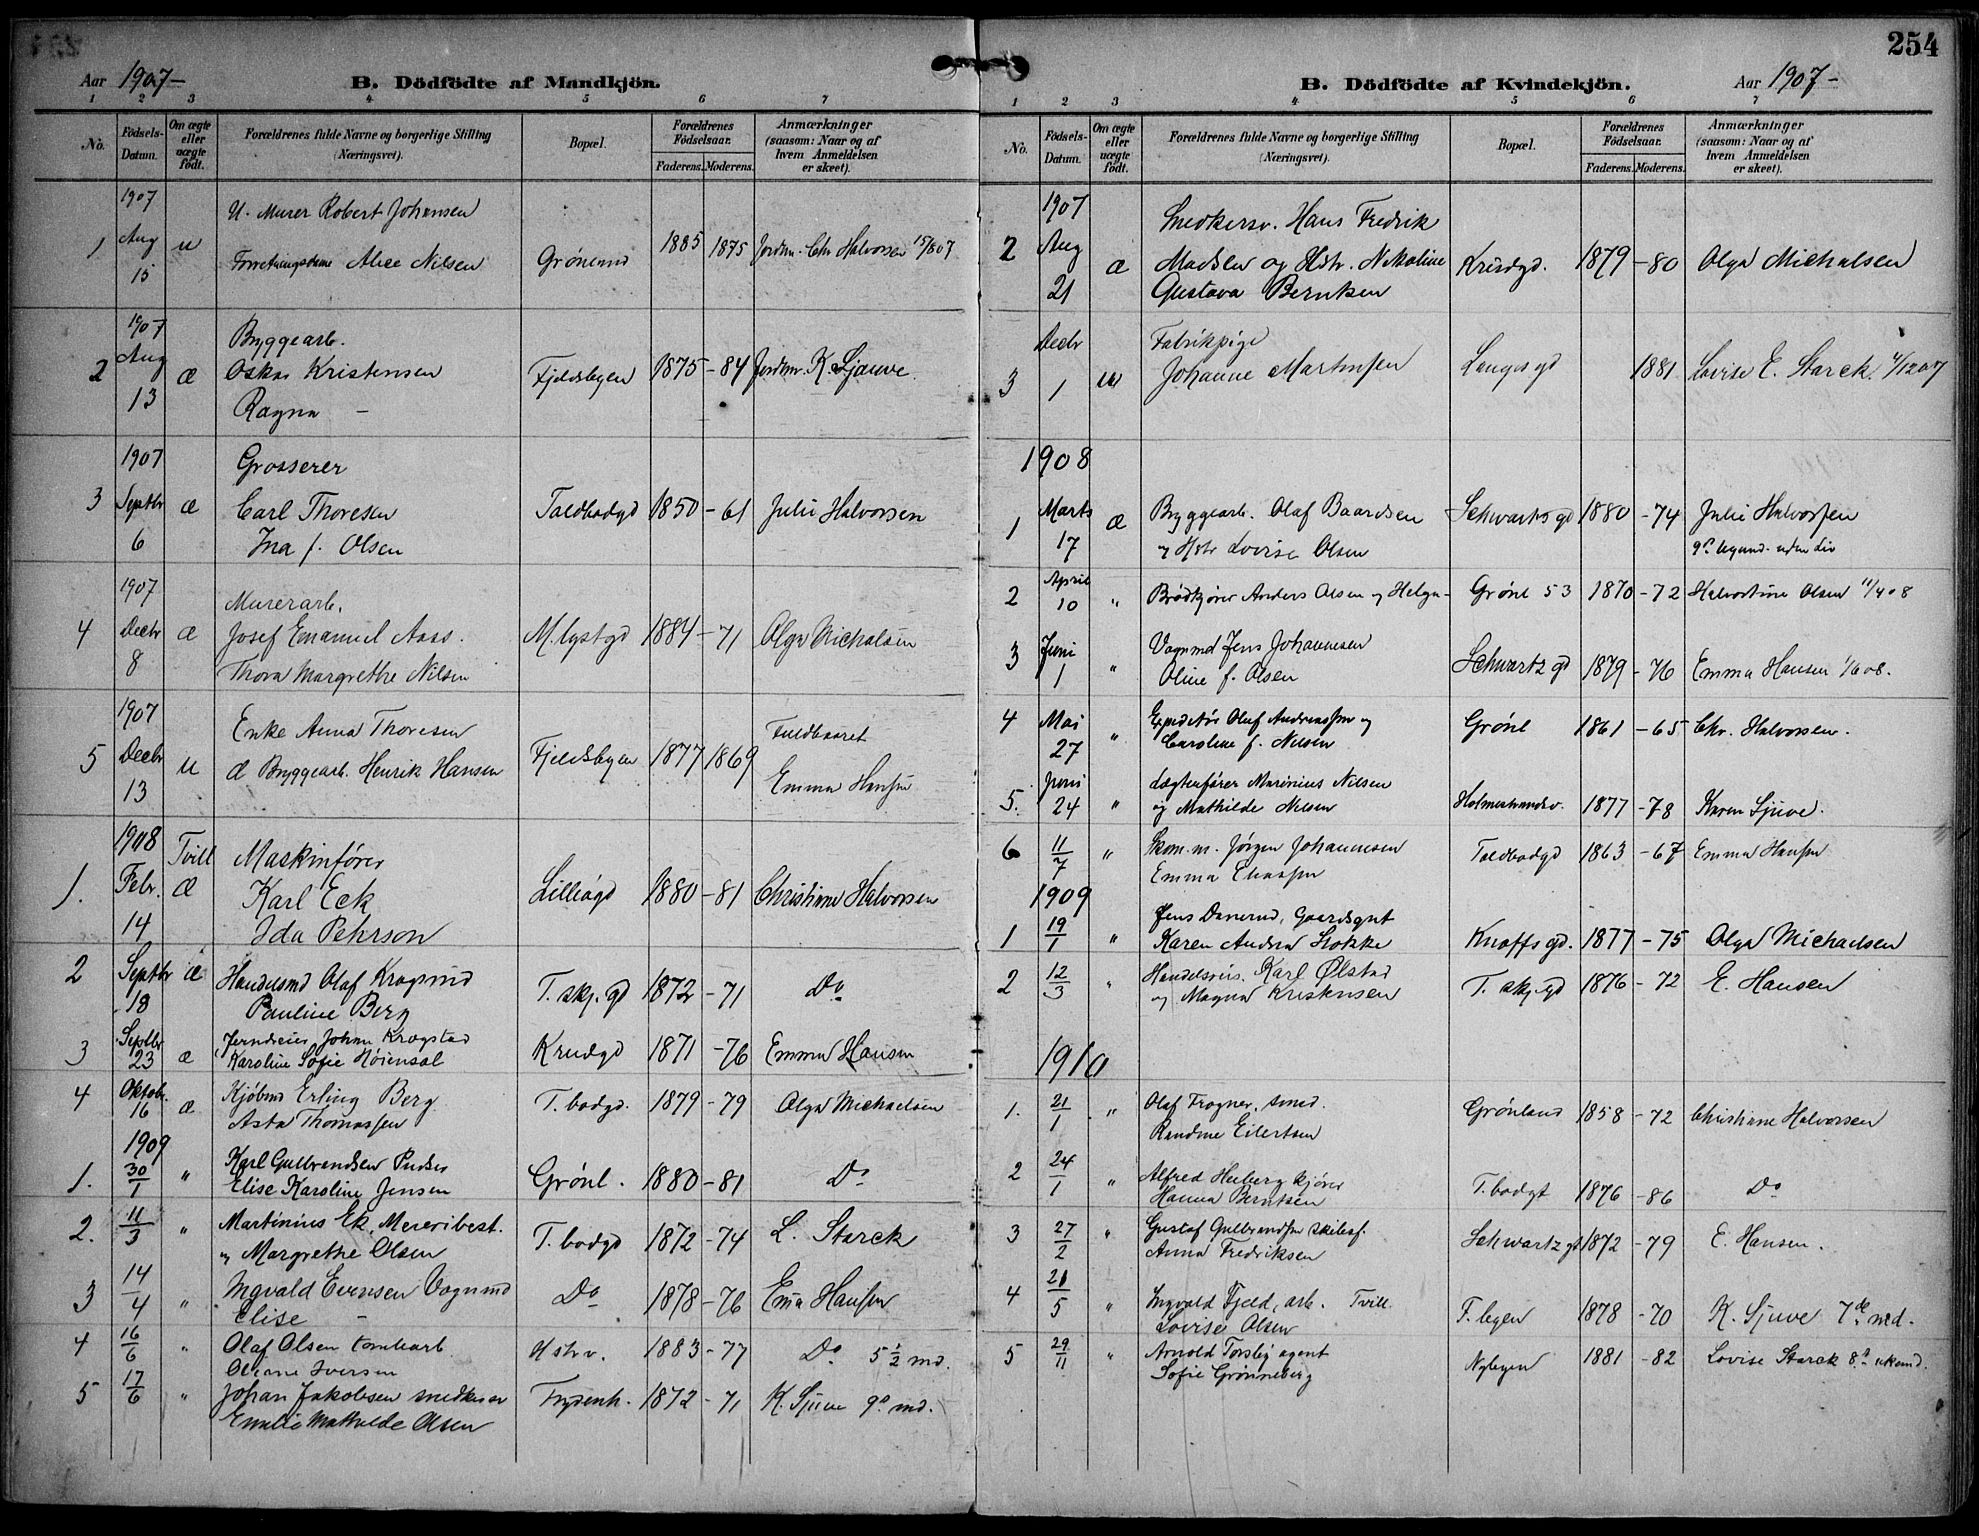 254
Aar 1907-
B. Dödfödte af Mandkjön.
1 2 3 4 5 6 7
No.
Födsels-Datum.
Om ægte eller uægte födt.
Forældrenes fulde Navne og borgerlige Stilling (Næringsvei).
Bopæl.
Forældrenes Födselsaar.
Faderens. Moderens.
Anmærkninger (saasom: Naar og af hvem Anmeldelsen er skeet).
1907
U. Murer Robert Johansen
1 Aug 15 u Forretningsdame Alice Nilsen Grønland 1885 1875 Jordm. Chr Halvorsen 15/8 07
1907
Byggearb.
2 Aug 13 æ Oskar Kristensen Fjeldbyen 1875-84 Jordm. K. Sjauve
Ragna -
1907
Grosserer
3 Septbr 6 æ Carl Thoresen Toldbodgd 1850-61 Julie Halvorsen
Ina f. Olsen
1907
Murerarb.
4 Decbr 8 æ Josef Emanuel Aass. M. lystgd 1884-71 Olga Michalsen
Thora Margrethe Nilsen
1907
Enke Anna Thoresen Fuldbaaret
5 Decbr 13 u æ Byggearb. Henrik Hansen Fjeldsbyen 1877 1869
Emma Hansen
1908 Tvill Maskinfører
1. Febr. 14 æ Karl Eck Lilleågd 1880-81 Christiane Halvorsen
Ida Pehrson
2 Septbr 18 æ Handelsmd Olaf Kragsrud T. skj. gd 1872-71 Do
Pauline Berg
3 Septbr 23 æ Jerndreier Johan Krogstad Krudgd 1871-76 Emma Hansen
Karoline Sofie Høiensal
4 Oktobr. 16 æ Kjøbmd Erling Berg T. bodgd. 1879-79 Olga Michaelsen
Asta Thomassen
1909
1. 30/1 " Karl Gulbrandsen Pudser Grønl. 1880-81 Do
Elise Karoline Jensen
2. 11/3 " Martinius Ek, Meieribest. T. bodgd 1872-74 L. Starck
og Margrethe Olsen
3 14/4 " Ingvald Evensen Vognmd Do 1878-76 Ema Hansen
Elise -
4 16/6 " Olaf Olsen tomtearb. Hstrv. 1883-77 Do 5 1/2 md.
Oleane Iversen
5 17/6 " Johan Jakobsen snedker Frydenh. 1872-71 K. Sjuve 9de md.
Emilie Mathilde Olsen
B. Dödfödte af Kvindekjön.
Aar 1907-
1 2 3 4 5 6 7
No.
Födsels-Datum.
Om ægte eller uægte födt.
Forældrenes fulde Navne og borgerlige Stilling (Næringsvei).
Bopæl.
Forældrenes Födselsaar.
Faderens. Moderens.
Anmærkninger (saasom: Naar og af hvem Anmeldelsen er skeet).
1907
Snedkersv. Hans Fredrik
2 Aug 21 æ Madsen og Hstr. Nikoline Krudgd. 1879-80 Olga Michalsen
Gustava Berntsen
Decbr Fabrikpige
3 1 u Johanne Martinsen Langesgd 1881 Lovise E. Starck 4/12 07
1908
1 Marts 17 æ Byggearb. Olaf Baardsen Schwartsgd 1880-74 Julie Halvorsen
og Hstr Lovise Olsen uden Liv
2 April 10 " Brødkjører Anders Olsen og Helga - Grønl 53 1870-72 Halvorsine Olsen 11/4 08
3 Juni 1 " Vognmd Jens Johannesen Schwartzgd 1879-76 Emma Hansen 1/6 08.
Oline f. Olsen
4 Mai 27 " Expeditør Oluf Andreassen og Grønl 1861-65 Chr. Halvorsen.
Caroline f. Nilsen
5. Juni 24 " Lægtenfører Marinius Nilsen
og Mathilde Nilsen Holmestrandsv. 1877-78 Karen Sjuve.
6 11/7 " Skom. m. Jørgen Johannesen Toldbodgd 1863-67 Emma Hansen
Emma Eliassen
1909
1 19/1 " Jens Danerud, Gaardsgut Knoffsgd. 1877-75 Olga Michaelsen
Karen Andrea Stokke
2 12/3 " Handelsreis. Karl Ølstad T. skj. gd 1876-72 E. Hansen
og Magna Kristensen
1910
1. 21/1 " Olaf Frogner, smed. Grønland 1858-72 Christiane Halvorsen
Randine Eilertsen
2 24/1 " Alfred Heiberg kjører T. bodgt 1876-86 Do
Hanna Berntsen
3 27/2 " Gustaf Gulbrandsen skibsf. Schwartzgt 1872-79 E. Hansen.
Anna Fredriksen
4 21/5 " Ingvald Fjeld, arb. Tvill. F. byen 1878-70 K. Sjuve 7de md.
Lovise Olsen
5 29/11 " Arnold Torsby agent Nybyen 1881-82 Lovise Starck 8de
Sofie Grønneberg